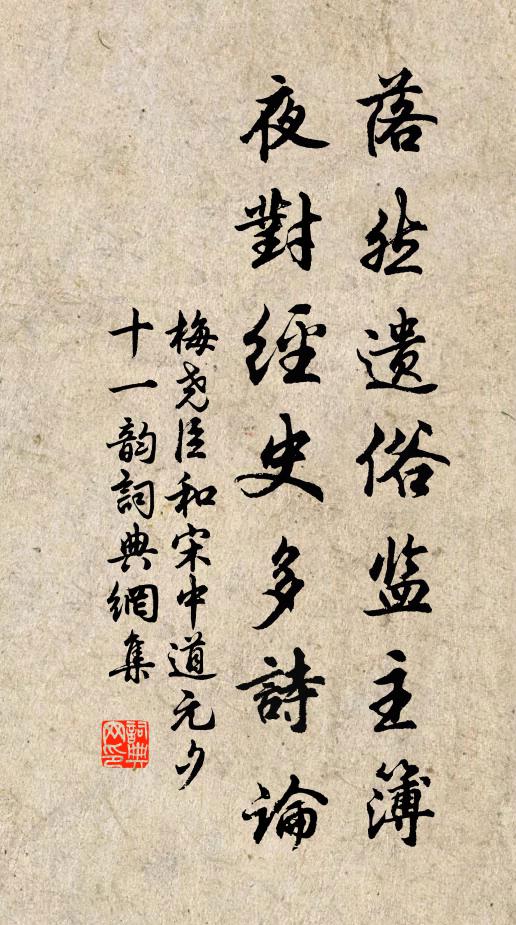 落然遗俗监主簿
夜對經史多詩論
梅尧臣和宋中道元夕
十一韵詞典網集
詞典
网印